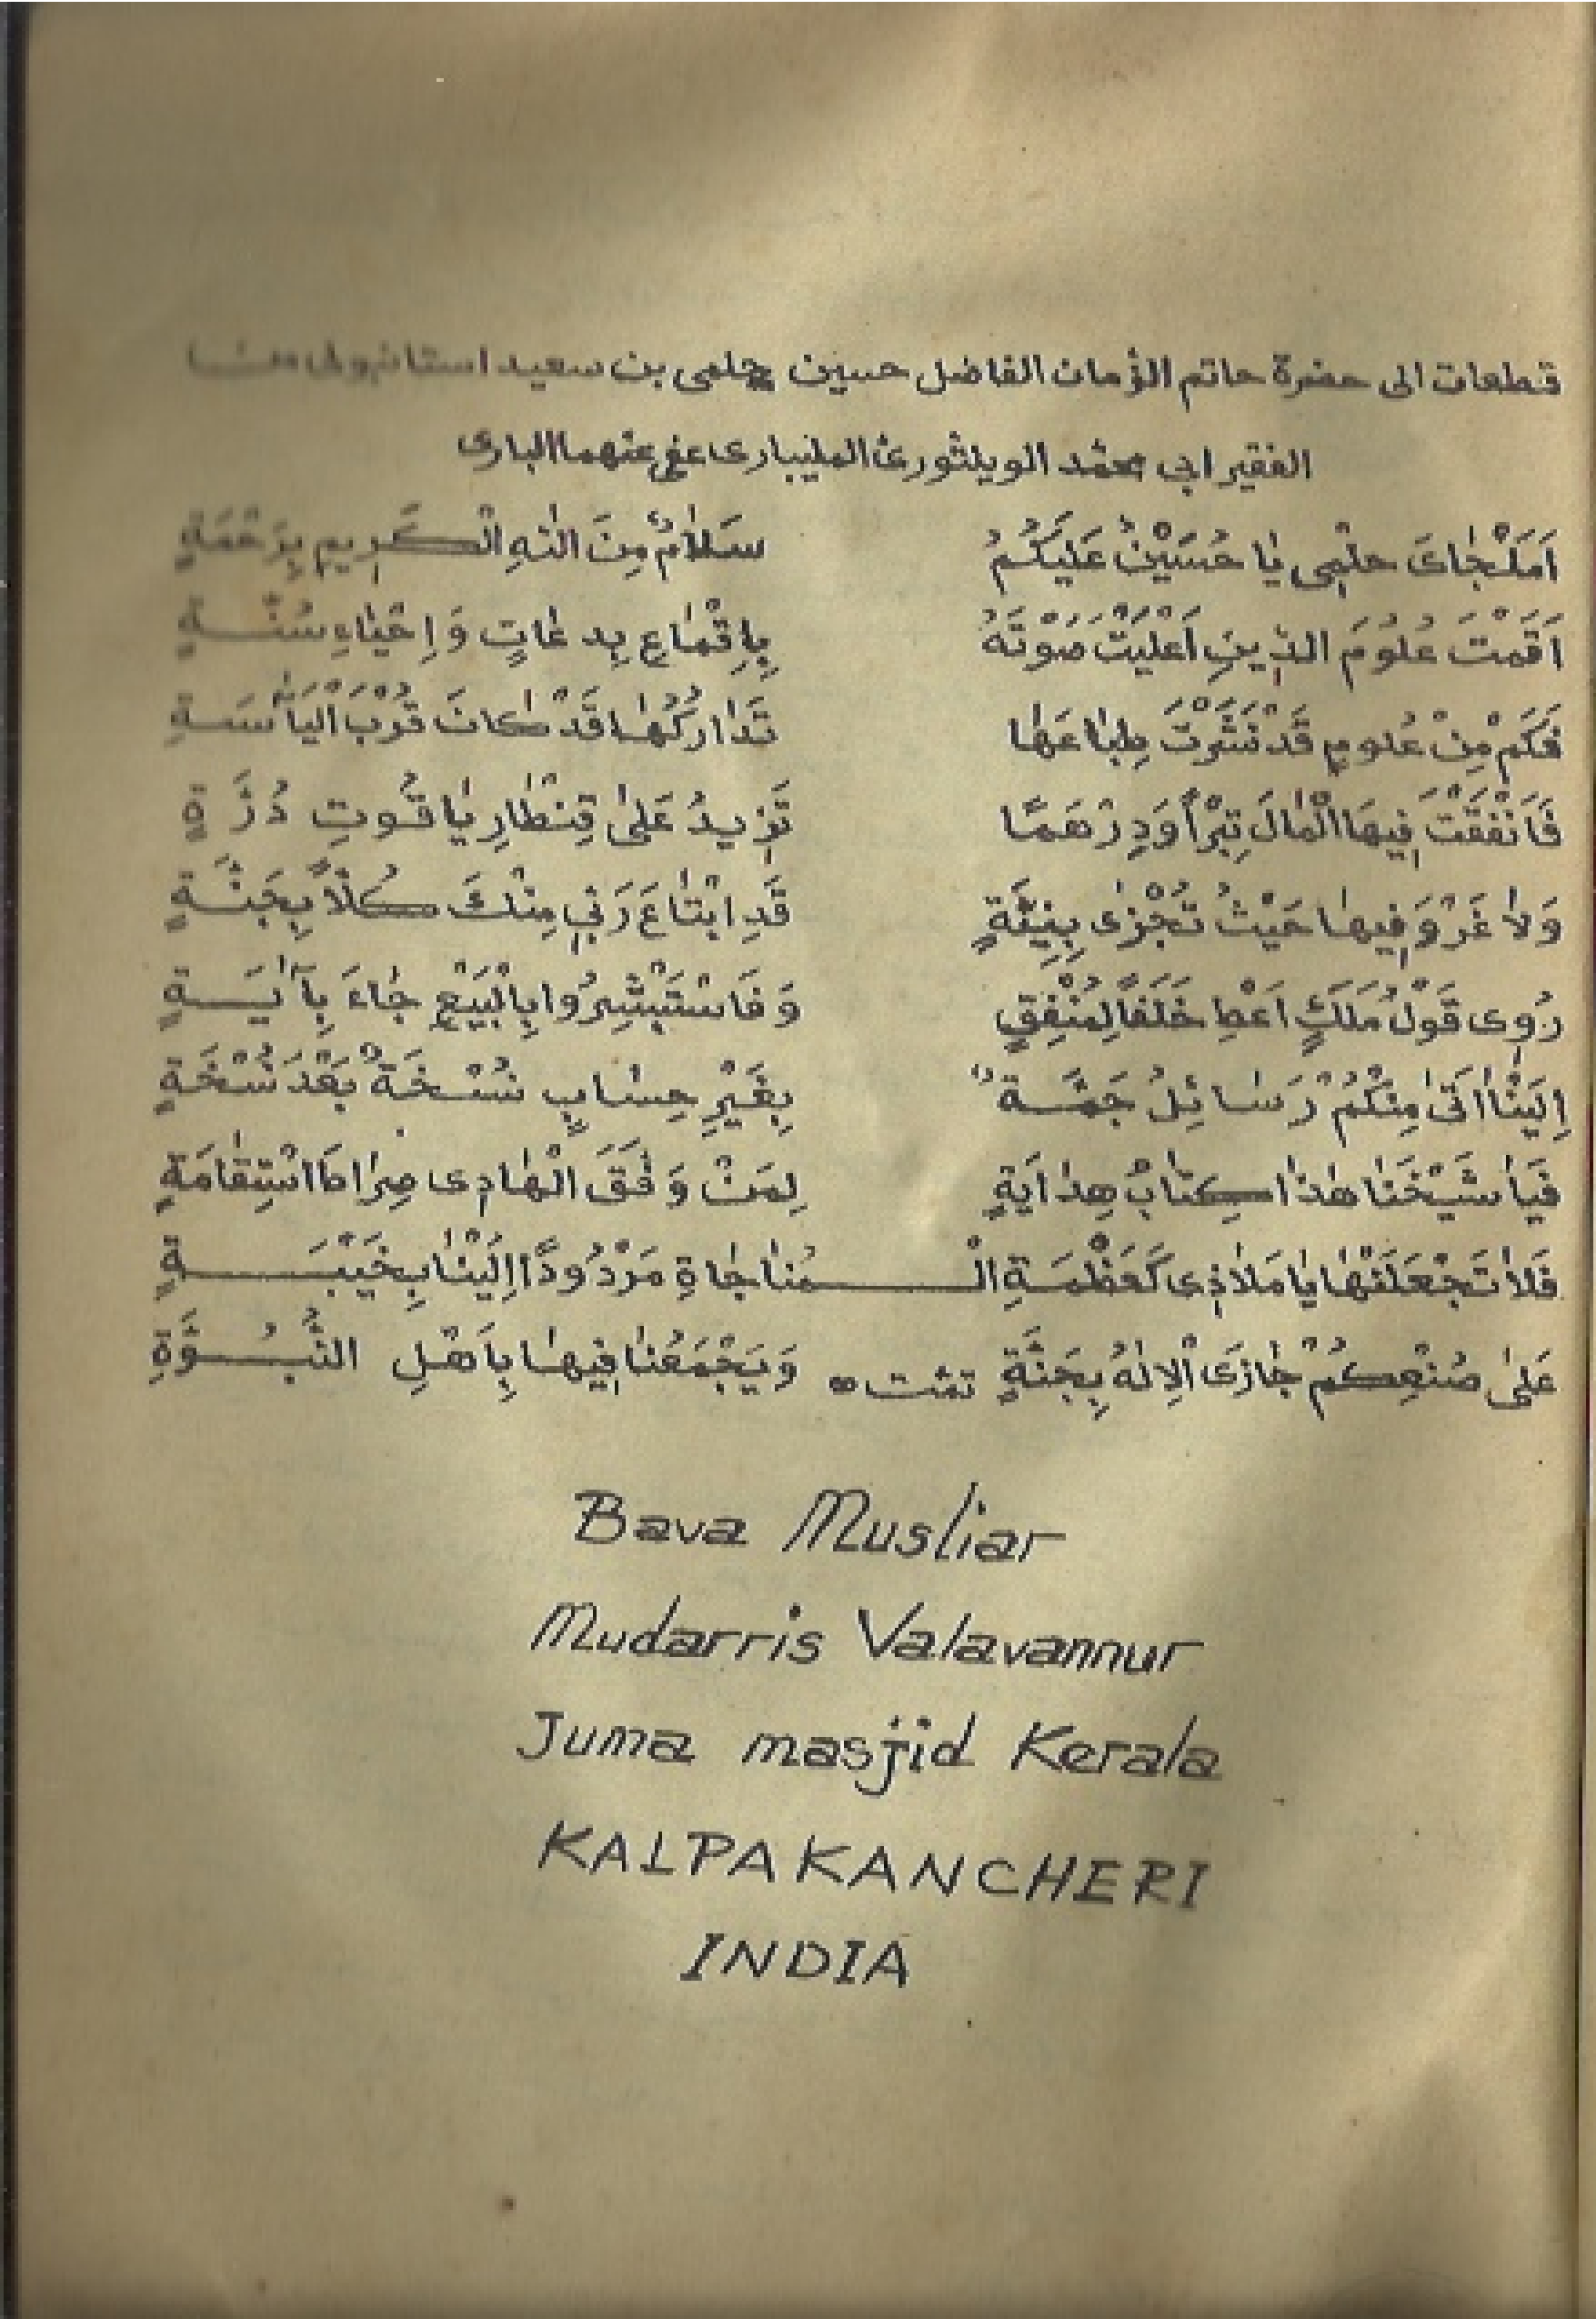 قطعات الى حضرة حاتم الزمان الفاضل حسين حلمى بن سعيد استانبولى من
الفقير ابي محمد الويلتورى المليبارى عفى عنهما البارى
اَمَلْجَاىَ حِلْمِى يَا حُسَيْنُ عَلَيْكُمُ سَلَامٌ مِنَ اللهِ الْكَرِيمِ بِرَحْمَةٍ
اَقَمْتَ عُلُومَ الدِّينِ اَعْلَيْتَ صَوْتَهُ بِاِقْمَاعِ بِدْعَاتٍ وَاِحْيَاءِ سُنَّةٍ
فَكَمْ مِنْ عُلُومٍ قَدْ نَشَرْتَ طِبَاعَهَا تَدَارُكُهَا قَدْ كَانَ قُرْبَ الْيَأْسَةِ
فَاَنْفَقْتَ فِيهَا الْمَالَ تِبْرًا وَدِرْهَمًا تَزِيدُ عَلَى قِنْطَارِ يَاقُوتِ دُرَّةٍ
وَلَا غَرْوَ فِيهَا حَيْثُ تُجْزَى بِنِيَّةٍ قَدِ ابْتَاعَ رَبِّي مِنْكَ كُلًّا بِجَنَّةٍ
رُوِى قَوْلُ مَلَكٍ اَعْطِ خَلَفًا لِمُنْفِقٍ وَفَاسْتَبْشِرُوا بِالْبَيْعِ جَاءَ بِآيَةٍ
اِلَيْنَا اَتَى مِنْكُمْ رَسَائِلُ جَمَّةٌ بِغَيْرِ حِسَابٍ نُسْخَةٌ بَعْدَ نُسْخَةٍ
فَيَا شَيْخَنَا هٰذَا كِتَابُ هِدَايَةٍ لِمَنْ وَفَّقَ الْهَادِى صِرَاطَ اسْتِقَامَةٍ
فَلَا تَجْعَلَنْهَا يَا مَلَاذِى كَعَظْمَةِ الْـمُنَاجَاةِ مَرْدُودًا اِلَيْنَا بِخَيْبَةٍ
عَلَى صُنْعِكُمْ جَازَى الْاِلٰهُ بِجَنَّةٍ تمت وَيَجْمَعُنَا فِيهَا بِاَهْلِ النُّبُوَّةِ
Bava Musliar
Mudarris Valavannur
Juma masjid Kerala
KALPAKANCHERI
INDIA